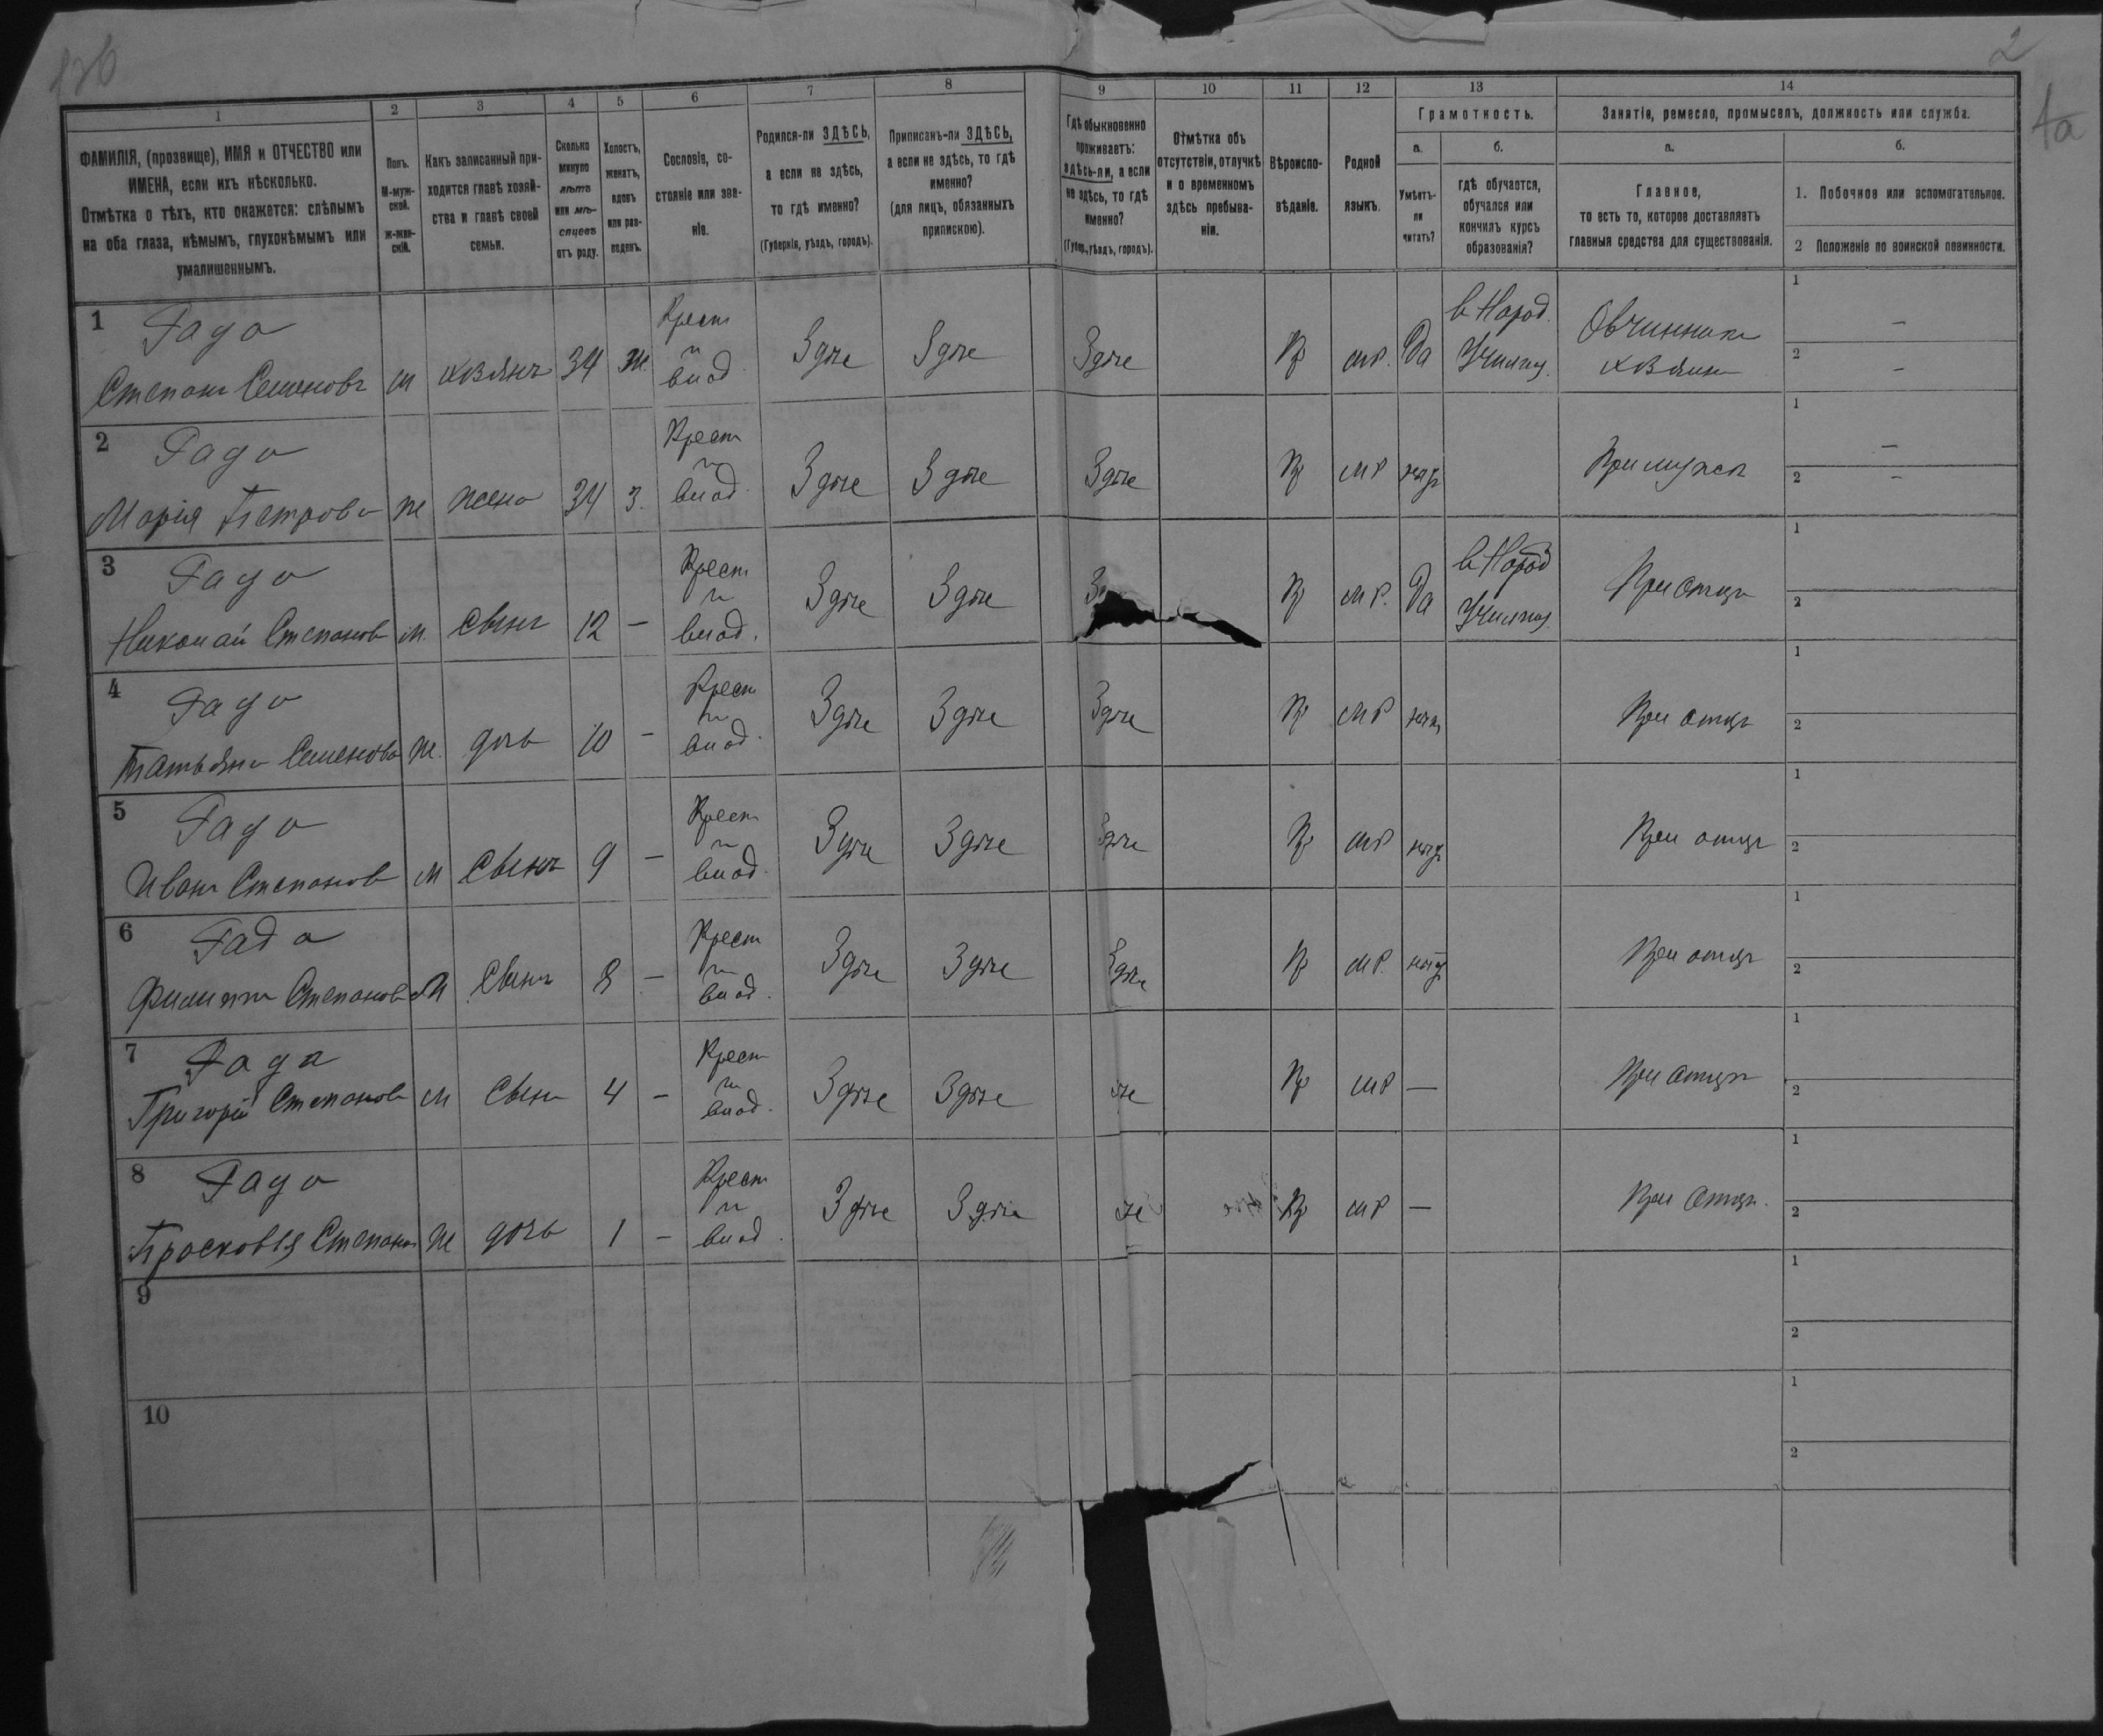 136
2
4a
1
2
3
4
5
6
7
8
9
10
11
12
13
14
ФАМИЛІЯ, (прозвище), ИМЯ и ОТЧЕСТВО или
ИМЕНА, если ихъ нѣсколько.
Отмѣтка о тѣхъ, кто окажется: слѣпымъ
на оба глаза, нѣмымъ, глухонѣмымъ или
умалишеннымъ.
Полъ.
М-муж-
ской.
ж-жен-
скій.
Какъ записанный при-
ходится главѣ хозяй-
ства и главѣ своей
семьи.
Сколько
минуло
лѣтъ
или мѣ-
сяцевъ
отъ роду.
Холостъ,
женатъ,
вдовъ
или раз-
веденъ.
Сословіе, со-
стояніе или зва-
ніе.
Родился-ли ЗДѢСЬ,
а если не здѣсь,
то гдѣ именно?
(Губернія, уѣздъ, городъ).
Приписанъ-ли ЗДѢСЬ,
а если не здѣсь, то гдѣ
именно?
(для лицъ, обязанныхъ
припискою).
Гдѣ обыкновенно
проживаетъ:
здѣсь-ли, а если
не здѣсь, то гдѣ
именно?
(Губер., уѣздъ, городъ).
Отмѣтка объ
отсутствіи, отлучкѣ
и о временномъ
здѣсь пребыва-
ніи.
Вѣроиспо-
вѣданіе.
Родной
языкъ.
Грамотность.
а.
Умѣетъ-
ли
читать?
б.
гдѣ обучается,
обучался или
кончилъ курсъ
образованія?
Занятіе, ремесло, промыселъ, должность или служба.
а.
Главное,
то есть то, которое доставляетъ
главныя средства для существованія.
б.
1. Побочное или вспомогательное.
2 Положеніе по воинской повинности.
1 Гада
Степанъ Семеновъ м хозяинъ 34 ж. Крест
и
влад. Здѣсе Здѣсе Здѣсе П мр. Да в Народ.
Училищ. Овчинникъ
хозяин 1 –
2 –
2 Гада
Марія Петрова ж жена 34 з. Крест
и
влад. Здѣсе Здѣсе Здѣсе П мр нѣтъ При мужѣ 1 –
2 –
3 Гада
Николай Степановъ м. Сынъ 12 – Крест
и
влад. Здѣсе Здѣсе П мр. Да в Народ
Училищ. При отцѣ 1
2
4 Гада
Татьяна Семенова ж. дочь 10 – Крест
и
влад. Здѣсе Здѣсе Здѣсе П мр нѣтъ При отцѣ 1
2
5 Гада
Иванъ Степановъ м Сынъ 9 – Крест
и
влад. Здѣсе Здѣсе Здѣсе П мр нѣтъ При отцѣ 1
2
6 Гада
Филиппъ Степановъ м Сынъ 8 – Крест
и
влад. Здѣсе Здѣсе Здѣсе П мр. нѣтъ При отцѣ 1
2
7 Гада
Григорій Степановъ м Сынъ 4 – Крест
и
влад. Здѣсе Здѣсе П мр – При отцѣ 1
2
8 Гада
Прасковья Степанов ж дочь 1 – Крест
и
влад. Здѣсе Здѣсе П мр – При отцѣ. 1
2
9
1
2
10
1
2